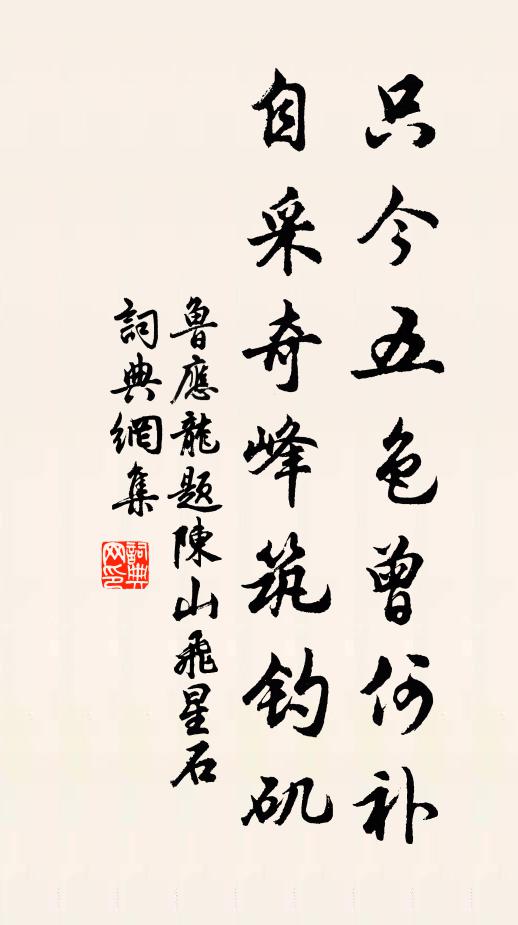 只今五色曾何补
自采奇峰筑钓矶
魯應龍题陳山飛星石
詞典網集
詞典网印